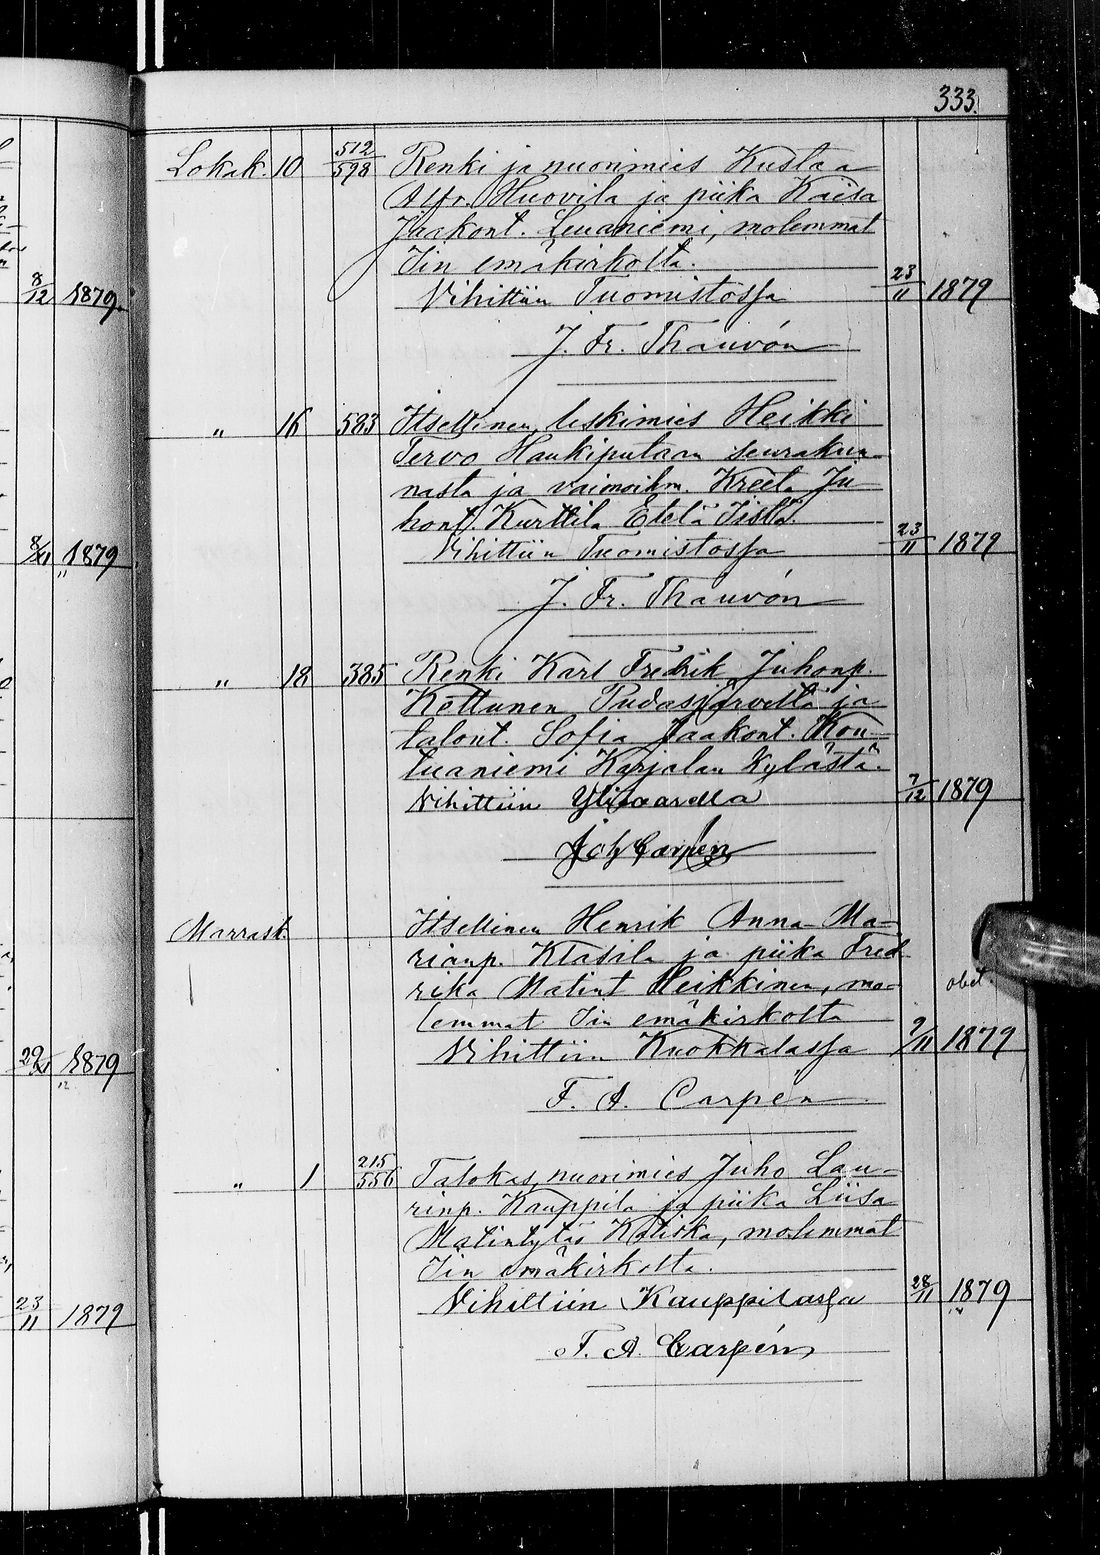 333.
Lokak. 10 512/598 Renki ja nuorimies Kustaa
Alfr. Huovila ja piika Kaisa
Jaakont. Leuaniemi, molemmat
Iin emäkirkolta.
Vihittiin Tuomistossa 23/11 1879
J. Fr. Thauvón
" 16 583 Itsellinen, leskimies Heikki
Tervo Haukiputaan seurakun-
nasta ja vaimoihm. Kreeta Ju-
hont. Kurttila Etelä Iistä.
Vihittiin Tuomistossa 23/11 1879
J. Fr. Thauvón
" 18 385 Renki Karl Fredrik Juhonp.
Kettunen Pudasjärveltä ja
talont. Sofia Jaakont. Kou-
tuaniemi Karjalan kylästä.
Vihittiin Ylisaarella 7/12 1879
Joh Carpén
Marrask. Itsellinen Henrik Anna Ma-
rianp. Klasila ja piika Fred-
rika Matint Heikkinen, mo-
lemmat Iin emäkirkolta
Vihittiin Kuokkalassa 9/11 1879
F. A. Carpén
" 1 215/556 Talokas, nuorimies Juho Lau-
rinp. Kauppila ja piika Liisa
Matintytär Katiska, molemmat
Iin emäkirkolta.
Vihittiin Kauppilassa 28/11 1879
F. A. Carpén
8/12 1879
8/11 1879
29/11 1879
23/11 1879